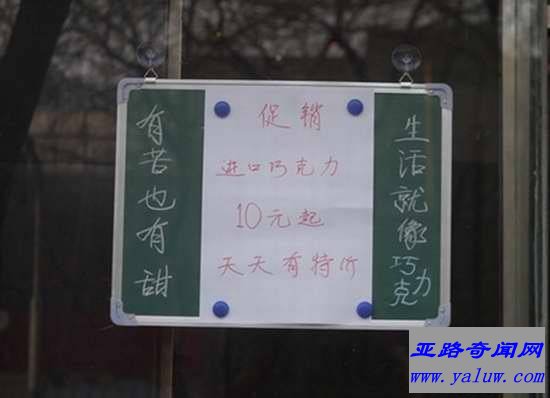 生活就像巧克力
促销
进口巧克力
10元起
天天有特价
有苦也有甜
亚路奇闻网
www.yaluw.com